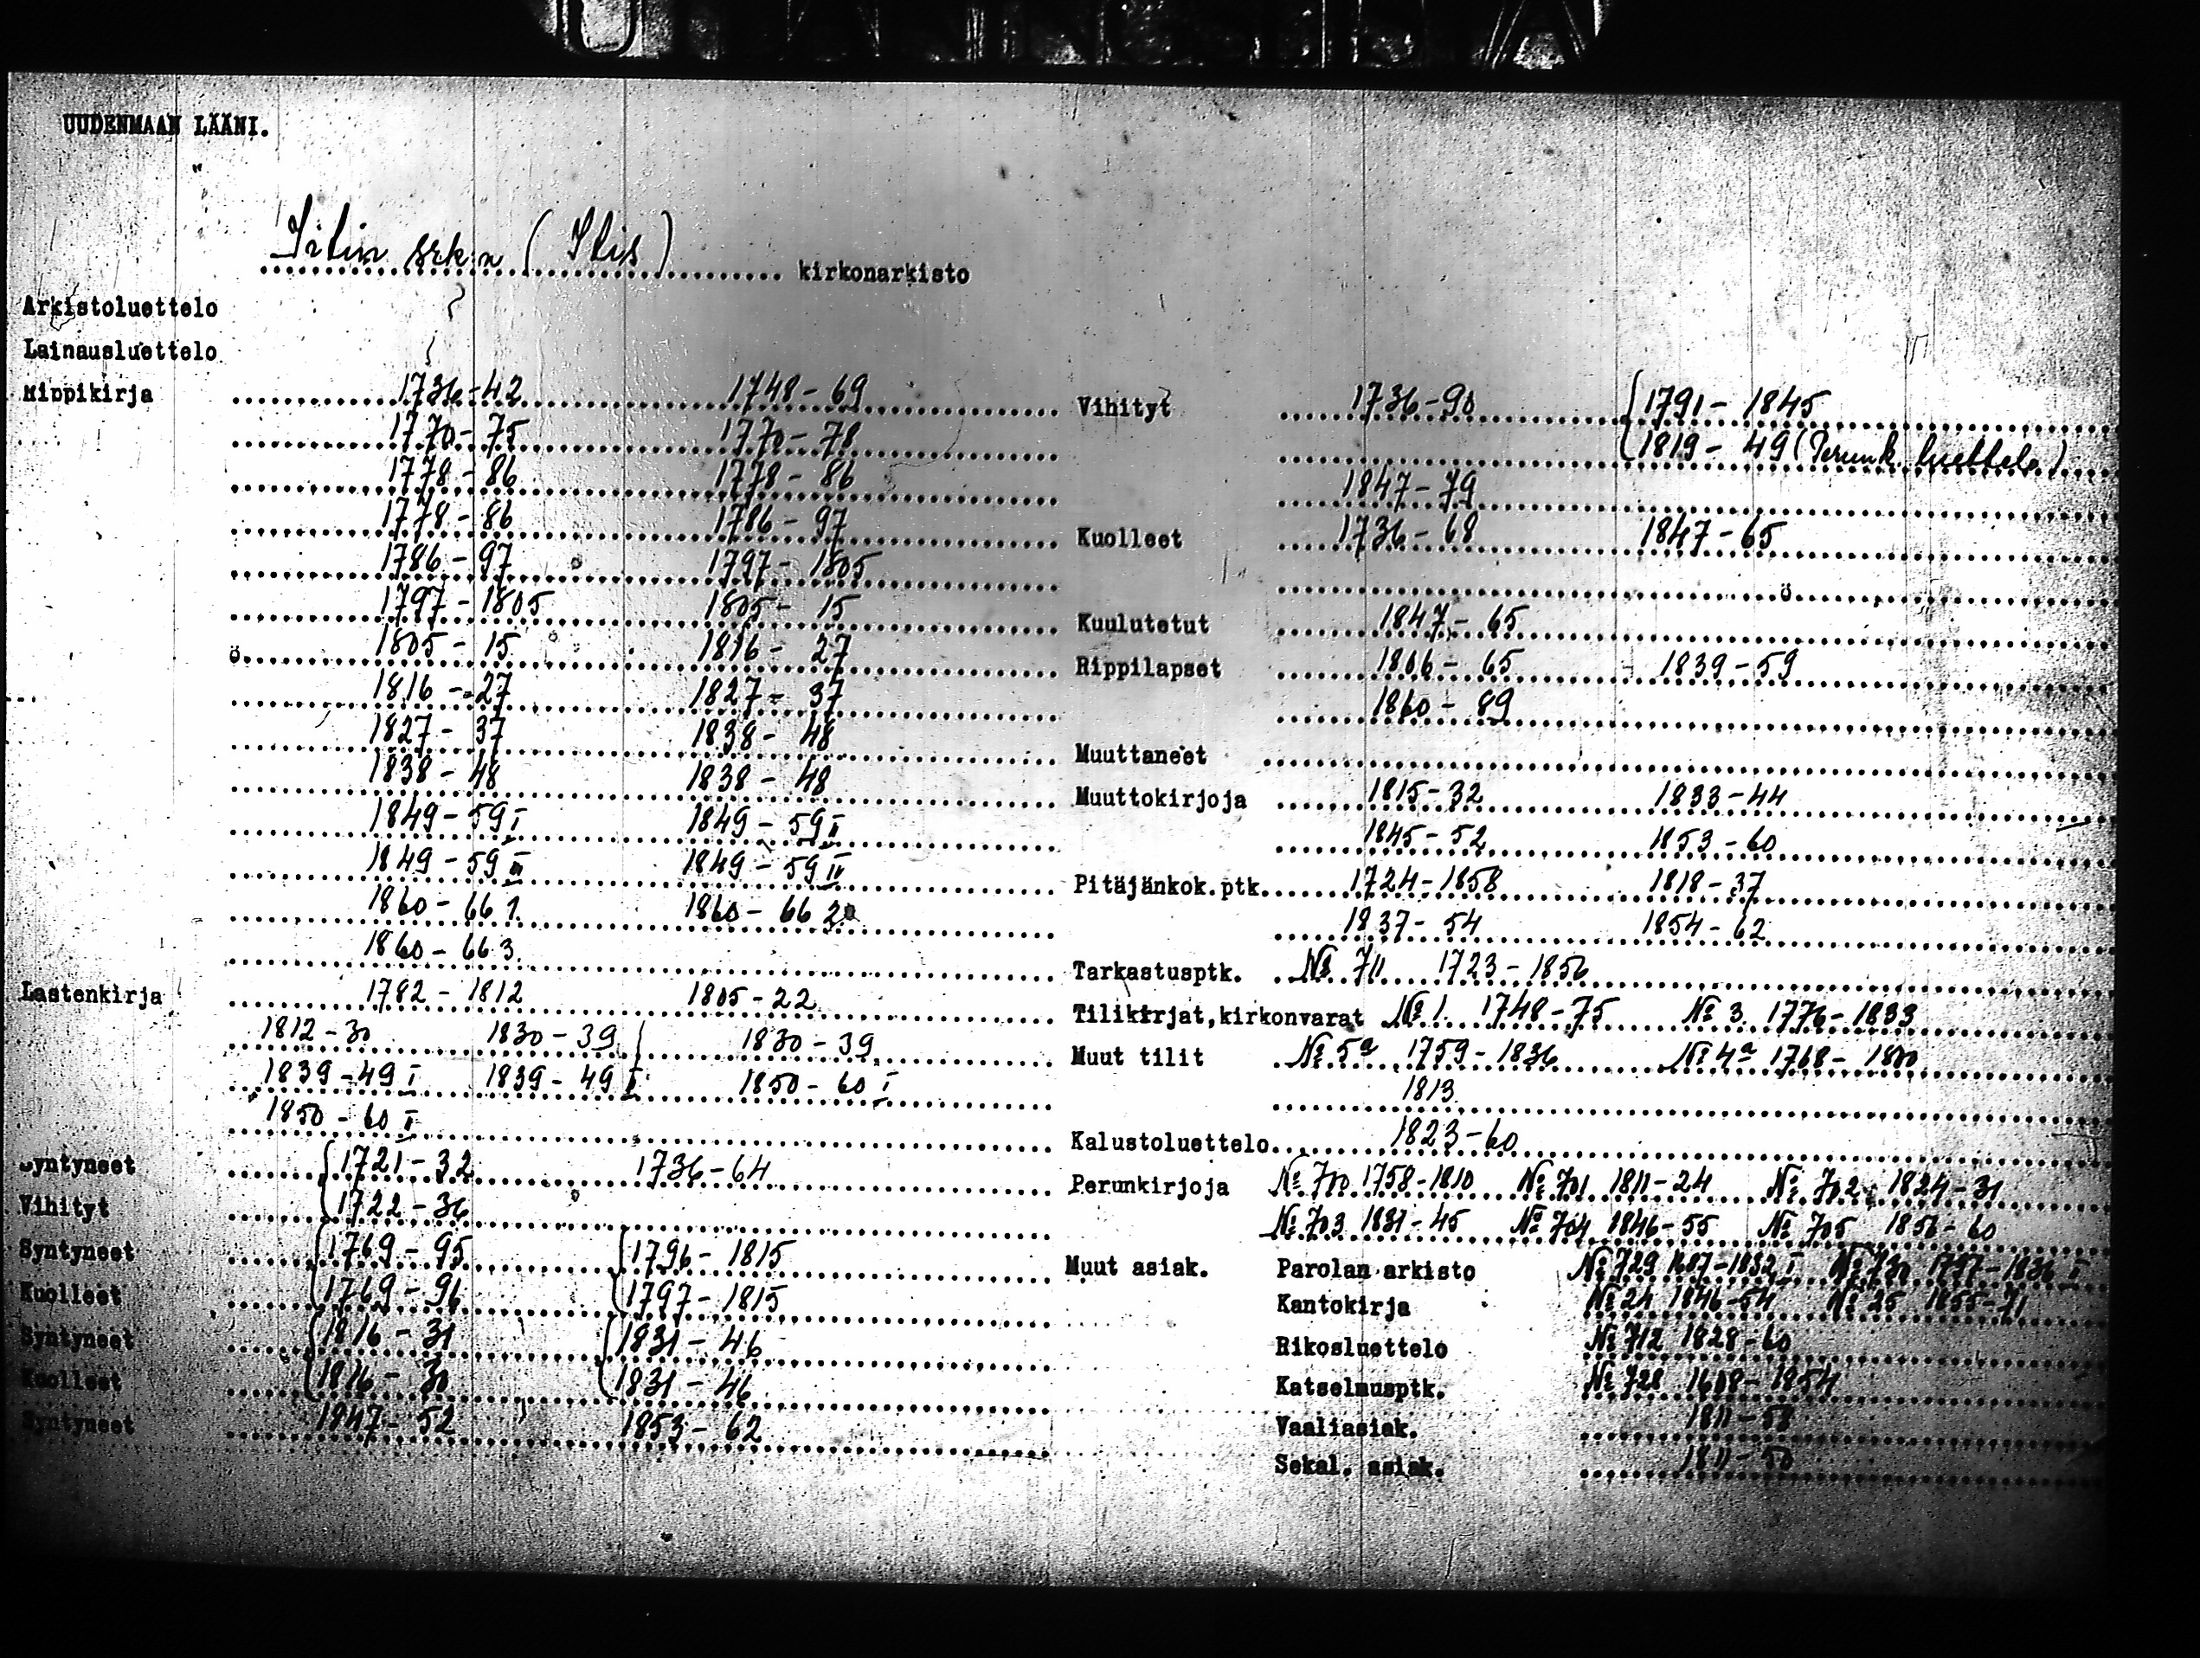 UUDENMAAN LÄÄNI.
srk:n ( ) kirkonarkisto
Arkistoluettelo
Lainausluettelo
Rippikirja 1736-42 1748-69
1770-75 1770-78
1778-86 1778-86
1778-86 1786-97
1786-97 1797-1805
1797-1805 1805-15
1805-15 1816-27
1816-27 1827-37
1827-37 1838-48
1838-48 1838-48
1849-59 I 1849-59 II
1849-59 1849-59 II
1860-66 1. 1860-66 2.
1860-66 3.
Lastenkirja 1782-1812 1805-22
1812-30 1830-39 1830-39
1839-49 I 1839-49 1850-60 I
1850-60
Syntyneet 1721-32 1736-64
Vihityt 1722-36
Syntyneet 1769-95 1796-1815
Kuolleet 1769-96 1797-1815
Syntyneet 1816-31 1831-46
Kuolleet 1816-30 1831-46
Syntyneet 1847-52 1853-62
Vihityt 1736-90 1791-1845
1819-49 (Perunk. luettelo)
1847-79
Kuolleet 1736-68 1847-65
Kuulutetut 1847-65
Rippilapset 1806-65 1839-59
1860-89
Muuttaneet
Muuttokirjoja 1815-32 1833-44
1845-52 1853-60
Pitäjänkok.ptk. 1724-1858 1818-37
1837-54 1854-62
Tarkastusptk. № 711 1723-1856
Tilikirjat,kirkonvarat № 1. 1748-75 № 3. 1776-1833
Muut tilit № 5a 1759-1836 № 4a 1768-1800
1813
Kalustoluettelo 1823-60
Perunkirjoja № 700 1758-1810 № 701 1811-24 № 702 1824-31
№ 703 1831-45 № 704 1846-55 № 705 1856-60
Muut asiak. Parolan arkisto № 729 № 730
Kantokirja № 24 1846-54 № 25 1855-71
Rikosluettelo № 712 1828-60
Katselmusptk. № 728 1608-1854
Vaaliasiak. 1811-58
Sekal. asiak. 1811-50